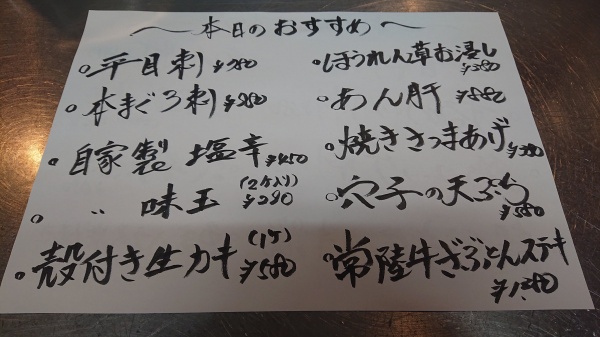 ～本日のおすすめ～
○平目刺 ¥980
○本まぐろ刺 ¥980
○自家製 塩辛 ¥450
○ 〃 味玉 (2ケ入り) ¥280
○殻付き生カキ (1ケ) ¥580
○ほうれん草お浸し ¥380
○あん肝 ¥880
○焼きさつまあげ
○穴子の天ぷら ¥880
○常陸牛ざぶとんステキ ¥1,380